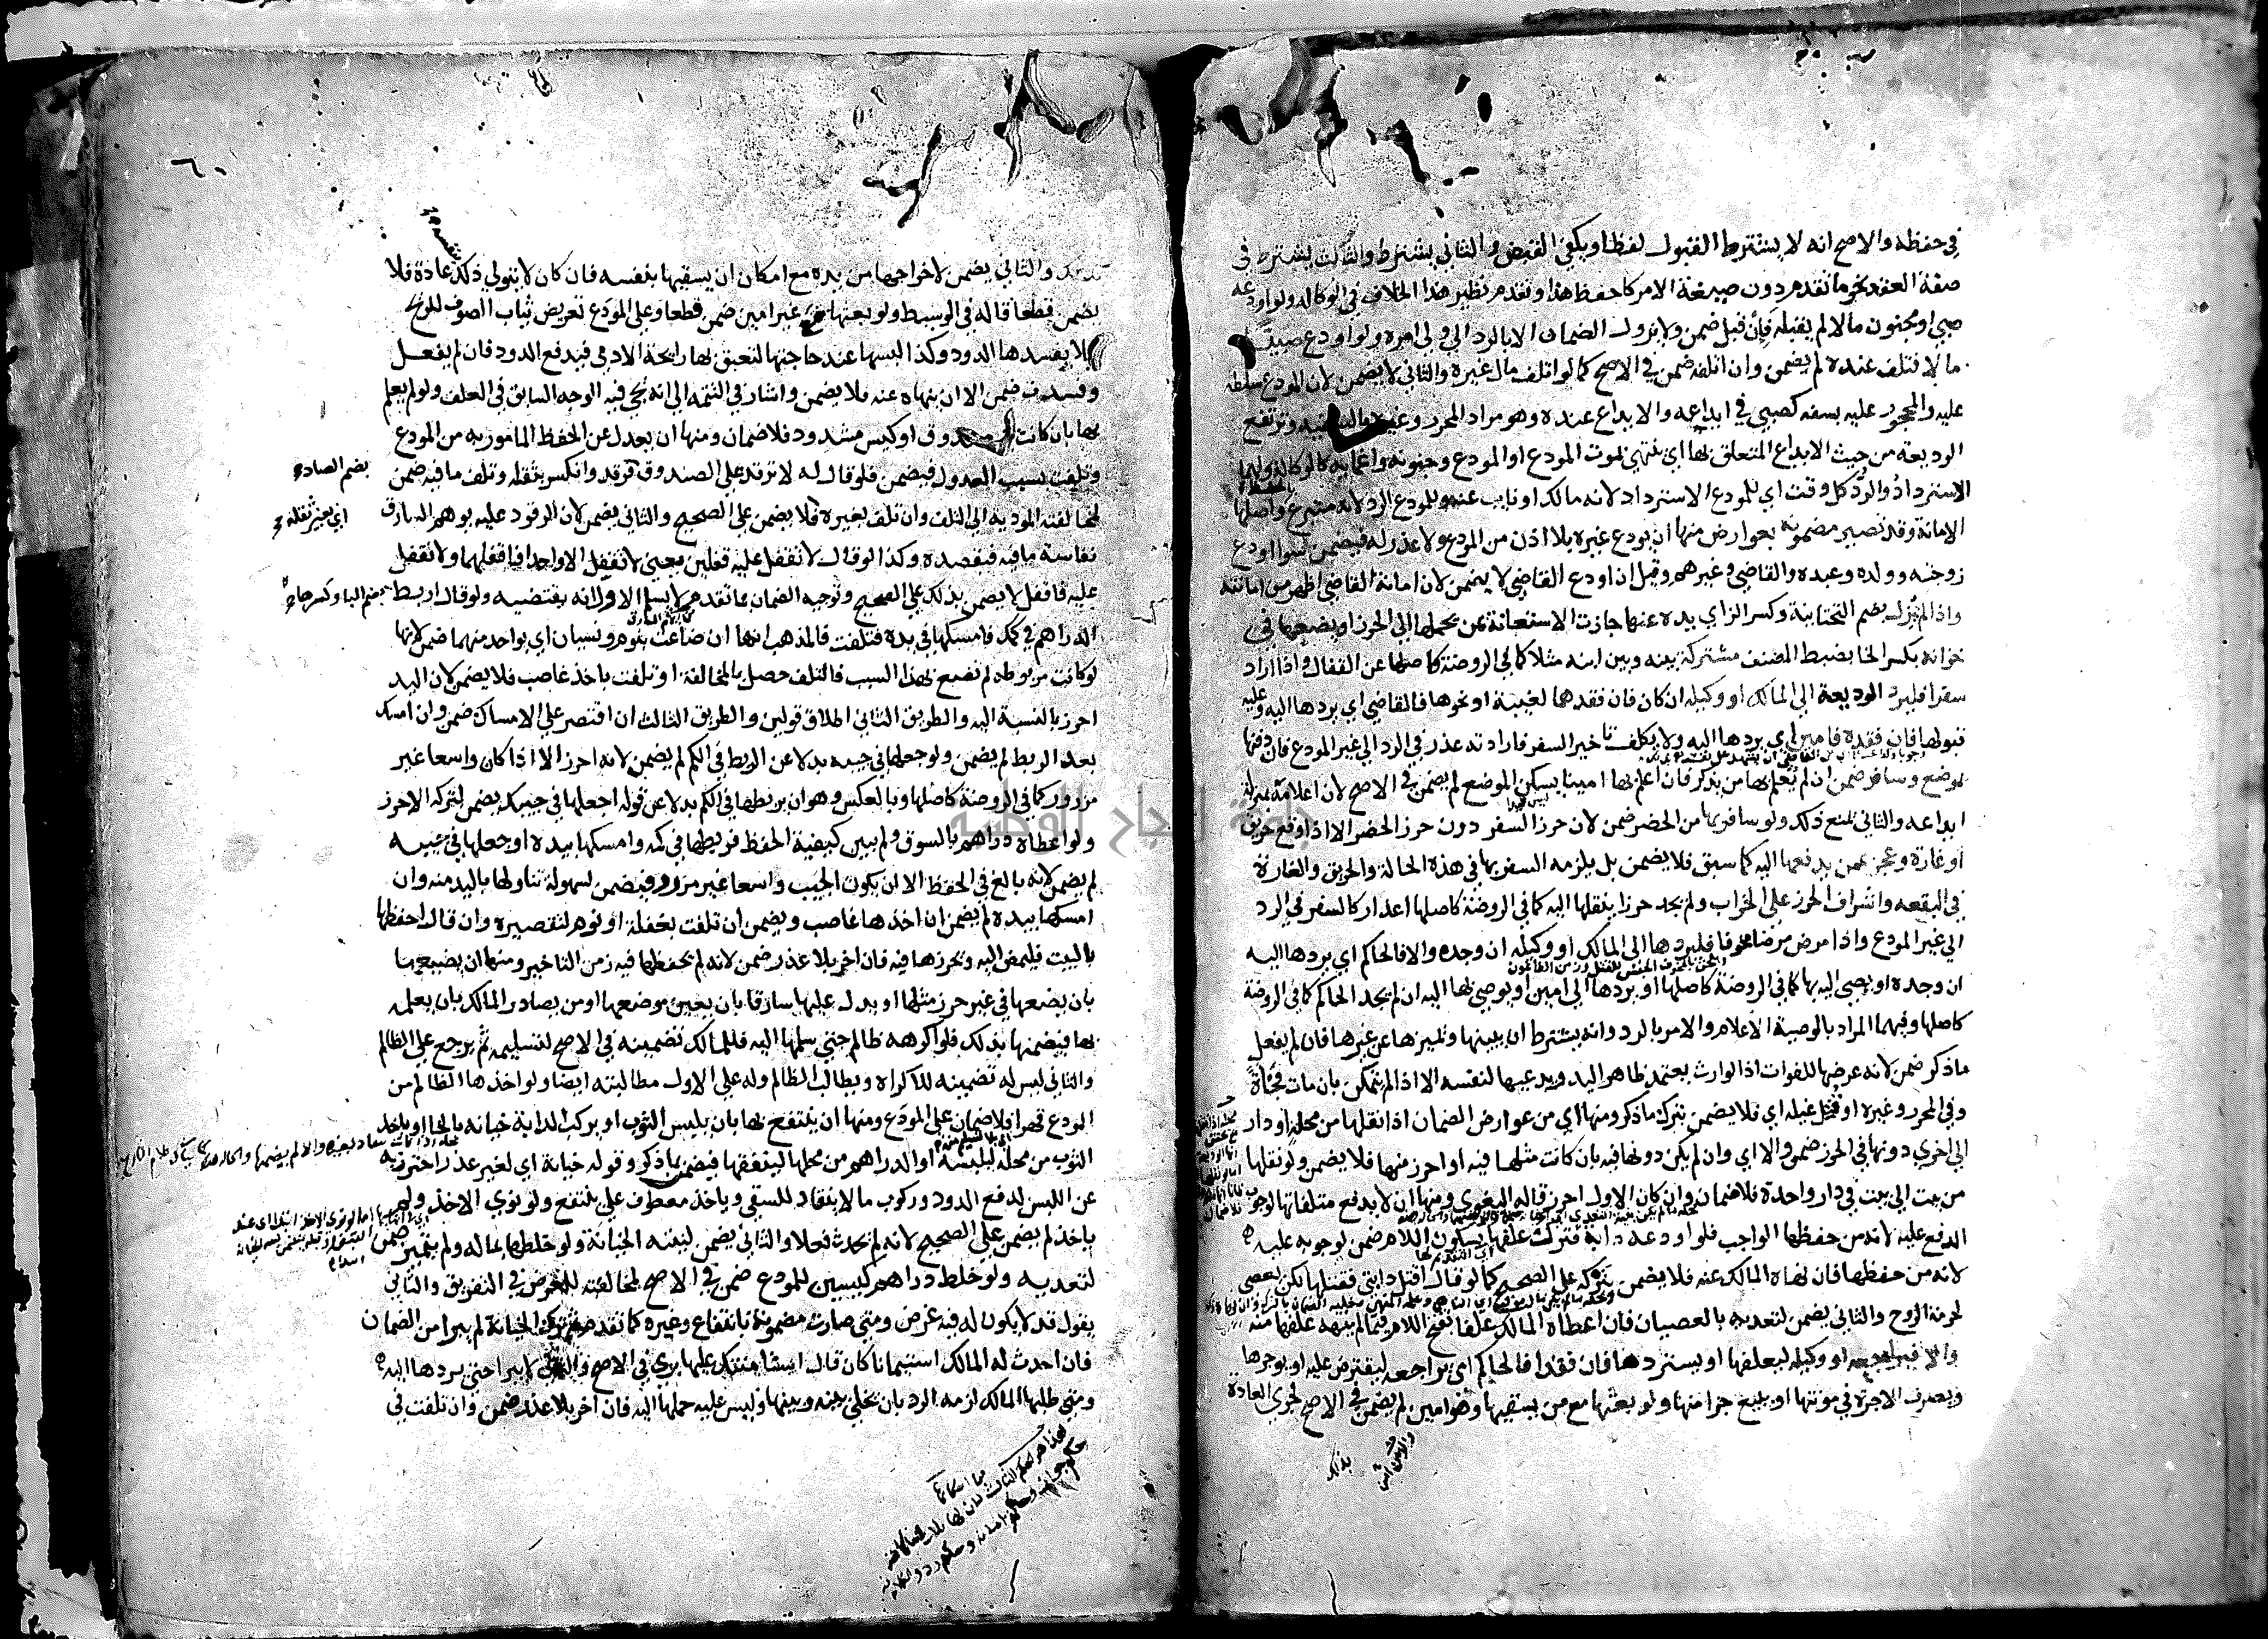 في حفظه والاصح انه لا يشترط القبول لفظا ويكفي القبض والثاني يشترط والثالث يشترط في
صيغة العقد نحو ما تقدم دون صيغة الامر كاحفظ هذا وتقدم نظير هذا الخلاف في الوكاله ولو اودعه
صبي او مجنون مالا لم يقبله فان قبل ضمن ولا يزول الضمان الا بالرد الي ولي امره ولو اودع صبيا
مالا فتلف عنده لم يضمن وان اتلفه ضمن في الاصح كما لو اتلف مال غيره والثاني لا يضمن لان المودع سلطه
عليه والمحجور عليه بسفه كصبي في ايداعه والايداع عنده وهو مراد المحرر وترتفع
الوديعة من حيث الايداع المتعلق بها اي ينتهي بموت المودع او المودع وجنونه واغمايه كالوكاله ولهما
الاسترداد والرد كل وقت اي للمودع الاسترداد لانه مالك او نايب عنه وللمودع الرد لانه متبرع واصلها
الامانة وقد تصير مضمونه بعوارض منها ان يودع غيره بلا اذن من المودع ولا عذر له فيضمن سوا اودع
زوجته وولده وعبده والقاضي وغيرهم وقيل ان اودع القاضي لا يضمن لان امانة القاضي اظهر من امانته
واذا لم يزل بضم التحتانية وكسر الزاي يده عنها جازت الاستعانة بمن يحملها الي الحرز او يضعها في
خزانه بكسر الخا بضبط المصنف مشتركة بينه وبين ابنه مثلا كما في الروضة كاصلها عن القفال واذا اراد
سفرا فليرد الوديعة الي المالك او وكيله ان كان فان فقدهما لغيبة او نحوها فالقاضي اي يردها اليه وعليه
قبولها فان فقده فامين اي يردها اليه ولا يكلف تاخير السفر فارادته عذر في الرد الي غير المودع فان دفنها
بموضع وسافر ضمن ان لم يعلم بها من يذكر فان اعلم بها امينا يسكن الموضع لم يضمن في الاصح لان اعلامه بمنزلة
ايداعه والثاني يمنع ذلك ولو سافر بها من الحضر ضمن لان حرز السفر دون حرز الحضر الا اذا وقع حريق
او غارة وعجز عمن يدفعها اليه كما سبق فلا يضمن بل يلزمه السفر بها في هذه الحالة والحريق والغارة
في البقعه واشراف الحرز علي الخراب ولم يجد حرزا ينقلها اليه كما في الروضة كاصلها اعذار كالسفر في الرد
الي غير المودع واذا مرض مرضا مخوفا فليردها الي المالك او وكيله ان وجده والا فالحاكم اي يردها اليه
ان وجده او يوصي اليه بها كما في الروضة كاصلها او يردها الي امين او يوصي بها اليه ان لم يجد الحاكم كما في الروضة
كاصلها وفيهما المراد بالوصية الاعلام والامر بالرد وانه يشترط ان يبينها وتمييزها عن غيرها فان لم يفعل
ما ذكر ضمن لانه عرضها للفوات اذ الوارث يعتمد ظاهر اليد ويدعيها لنفسه الا اذا لم يتمكن بان مات فجأة
وفي المحرر وغيره او قتل غيلة اي فلا يضمن بترك ما ذكر ومنها اي من عوارض الضمان اذا نقلها من محلة او دار
الي اخري دونها في الحرز ضمن والا اي وان لم يكن دونها فيه بان كانت مثلها فيه او احرز منها فلا يضمن ولو نقلها
من بيت الي بيت في دار واحدة فلا ضمان وان كان الاول احرز قاله البغوي ومنها ان لا يدفع متلفاتها لوجوب
الدفع عليه لانه من حفظها الواجب فلو اودعه دابة فترك علفها بسكون اللام ضمن لوجوبه عليه
لانه من حفظها فان نهاه المالك عنه فلا يضمن بتركه علي الصحيح كما لو قال اقتل دابتي فقتلها لكن يعصي
لحرمة الروح والثاني يضمن لتعديه بالعصيان فان اعطاه المالك علفا بفتح اللام فيما لم ينهه علفها منه
والا فيراجعه او وكيله ليعلفها او يستردها فان فقدا فالحاكم اي يراجعه ليقترض عليه او يوجرها
ويصرف الاجرة في مونتها او يبيع جزا منها ولو بعثها مع من يسقيها وهو امين لم يضمن في الاصح لجري العادة
بذلك
٦٠
بذلك والثاني يضمن لاخراجها من يده مع امكان ان يسقيها بنفسه فان كان لا يتولي ذلك عادة فلا
يضمن قطعا قاله في الوسيط ولو بعثها مع غير امين ضمن قطعا وعلي المودع تعريض ثياب الصوف للريح
كيلا يفسدها الدود وكذا البسها عند حاجتها لتعبق بها رايحة الادمي فيدفع الدود فان لم يفعل
وفسدت ضمن الا ان ينهاه عنه فلا يضمن واشار في التتمة الي انه يجي فيه الوجه السابق في العلف ولو لم يعلم
بها بان كانت في صندوق او كيس مشدود فلا ضمان ومنها ان يعدل عن الحفظ المامور به من المودع
وتلفت بسبب العدول فيضمن فلو قال له لا ترقد علي الصندوق فرقد وانكسر بثقله وتلف ما فيه ضمن
لمخالفته المودية الي التلف وان تلف بغيره فلا يضمن علي الصحيح والثاني يضمن لان الرقود عليه يوهم السارق
نفاسة ما فيه فيقصده وكذا لو قال لا تقفل عليه قفلين بمعني لا تقفل الا واحدا فاقفلهما ولا تقفل
عليه فاقفل لا يضمن بذلك علي الصحيح وتوجيه الضمان بما تقدم لا يسلم الاول انه يقتضيه ولو قال اربط
الدراهم في كمك فامسكها في يده فتلفت فالمذهب انها ان ضاعت بنوم ونسيان اي بواحد منهما ضمن لانها
لو كانت مربوطه لم تضع بهذا السبب فالتلف حصل بالمخالفة او تلفت باخذ غاصب فلا يضمن لان اليد
احرز بالنسبة اليه والطريق الثاني اطلاق قولين والطريق الثالث ان اقتصر علي الامساك ضمن وان امسك
بعد الربط لم يضمن ولو جعلها في جيبه بدلا عن الربط في الكم لم يضمن لانه احرز الا اذا كان واسعا غير
مزرور كما في الروضة كاصلها وبالعكس وهو ان يربطها في الكم بدلا عن قوله اجعلها في جيبك يضمن لتركه الاحرز
ولو اعطاه دراهم بالسوق ولم يبين كيفية الحفظ فربطها في كمه وامسكها بيده او جعلها في جيبه
لم يضمن لانه بالغ في الحفظ الا ان يكون الجيب واسعا غير مزرور فيضمن لسهولة تناولها باليد منه وان
امسكها بيده لم يضمن ان اخذها غاصب ويضمن ان تلفت بغفلة او نوم لتقصيره وان قال احفظها
بالبيت فليمض اليه ويحرزها فيه فان اخر بلا عذر ضمن لانه لم يحفظها فيه زمن التاخير ومنها ان يضيعها
بان يضعها في غير حرز مثلها او يدل عليها سارقا بان يعين موضعها او من يصادر المالك بان يعلمه
بها فيضمنها بذلك فلو اكرهه ظالم حتي سلمها اليه فللمالك تضمينه في الاصح لتسليمه ثم يرجع علي الظالم
والثاني ليس له تضمينه للاكراه ويطالب الظالم وله علي الاول مطالبته ايضا ولو اخذها الظالم من
المودع قهرا فلا ضمان علي المودع ومنها ان ينتفع بها بان يلبس الثوب او يركب الدابة خيانه بالخا او ياخذ
الثوب من محله ليلبسه او الدراهم من محلها لينفقها فيضمن بما ذكر وقوله خيانة اي لغير عذر احترز به
عن اللبس لدفع الدود وركوب ما لا ينقاد للسقي وياخذ معطوف علي ينتفع ولو نوي الاخذ ولم
ياخذ لم يضمن علي الصحيح لانه لم يحدث فعلا والثاني يضمن لنيته الخيانة ولو خلطها بماله ولم يتميز ضمن
لتعديه ولو خلط دراهم كيسين للمودع ضمن في الاصح لمخالفته للغرض في التفريق والثاني
يقول قد لا يكون له فيه غرض ومتي صارت مضمونة بانتفاع وغيره كما تقدم ثم ترك الخيانة لم يبرا من الضمان
فان احدث له المالك استيمانا كان قال استامنتك عليها بري في الاصح والثاني لا يبرا حتي يردها اليه
ومتي طلبها المالك لزمه الرد بان يخلي بينه وبينها وليس عليه حملها اليه فان اخر بلا عذر ضمن وان تلفت في
بضم الصاد
اي بغير ثقله
بضم البا وكسرها